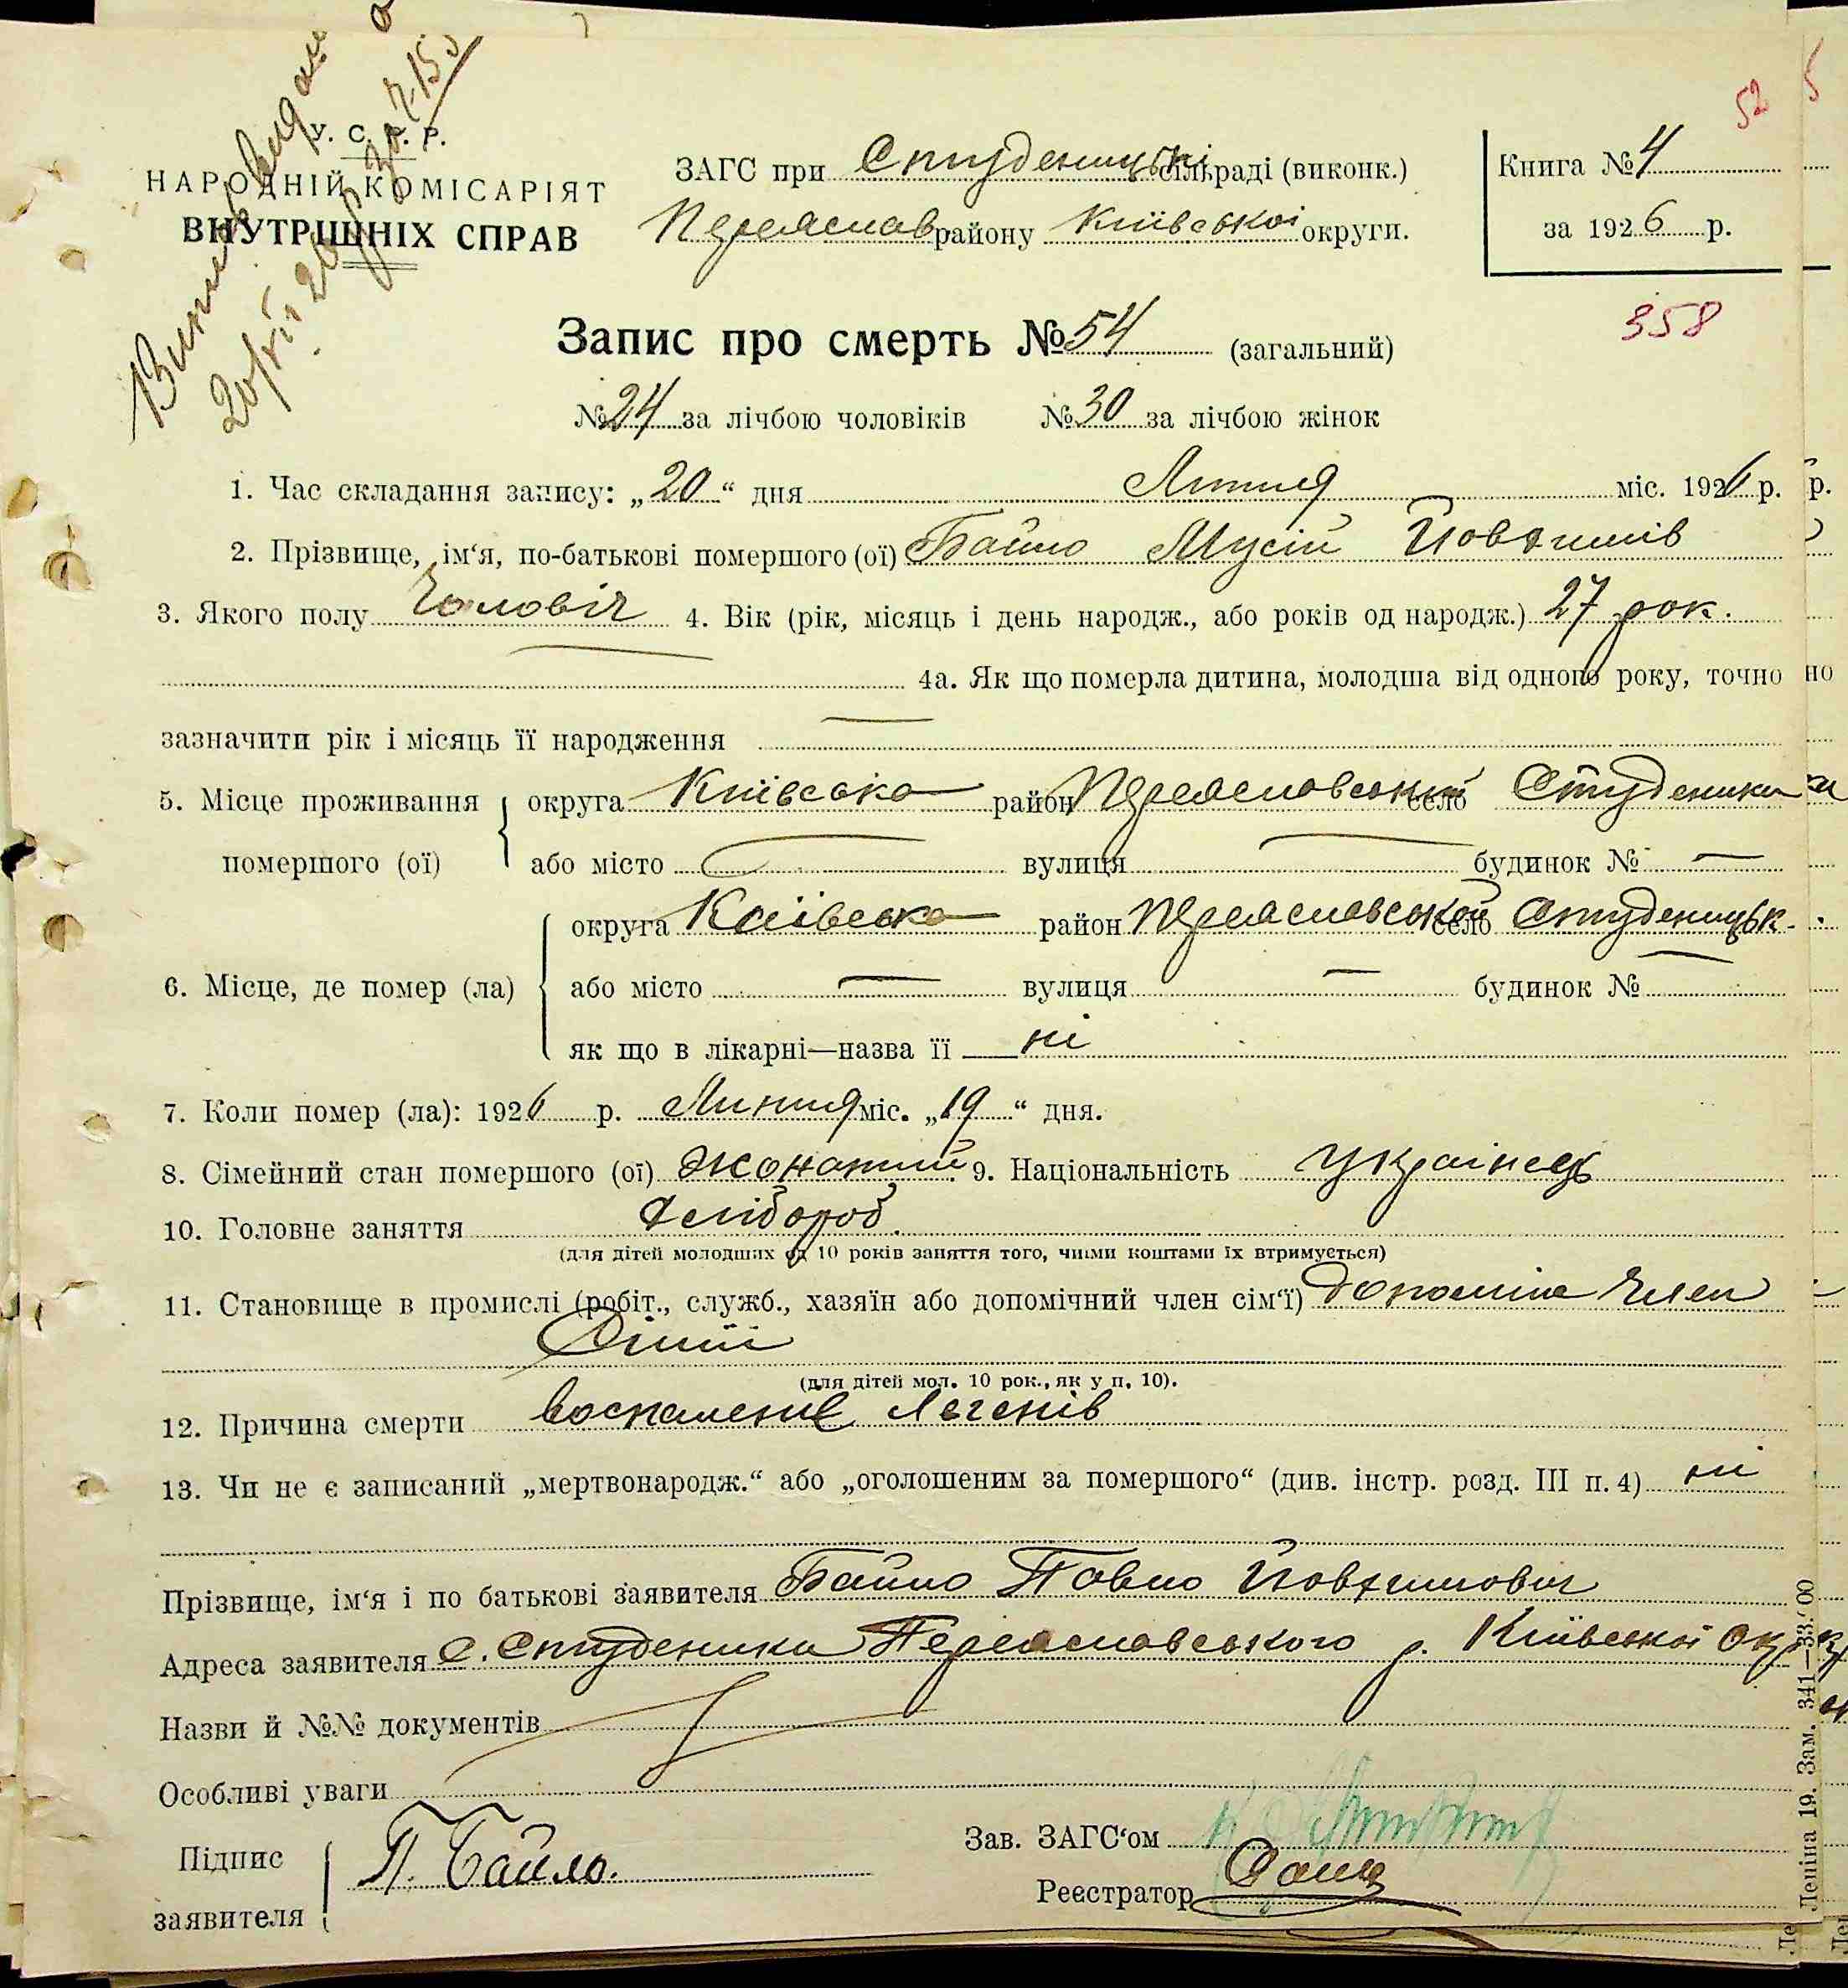 52
У. С. Р. Р.
НАРОДНІЙ КОМІСАРІЯТ
ВНУТРІШНІХ СПРАВ
ЗАГС при Студеницькі сільраді (виконк.)
Переяслав району Київської округи.
Книга № 4
за 1926 р.
358
Запис про смерть № 54 (загальний)
№ 24 за лічбою чоловіків № 30 за лічбою жінок
1. Час складання запису: „20“ дня Липня міс. 1926 р.
2. Прізвище, ім‘я, по-батькові помершого (ої) Байло Мусій Йовхимів
3. Якого полу Чоловіч 4. Вік (рік, місяць і день народж., або років од народж.) 27 рок.
4а. Як що померла дитина, молодша від одного року, точно
зазначити рік і місяць її народження —
5. Місце проживання округа Київська район Переяславський село Студеники
помершого (ої) або місто — вулиця — будинок № —
округа Київська район Переяславській село Студеницьк.
6. Місце, де помер (ла) або місто — вулиця — будинок № —
як що в лікарні—назва її ні
7. Коли помер (ла): 1926 р. Липня міс. „19“ дня.
8. Сімейний стан помершого (ої) жонатий 9. Національність Українець
10. Головне заняття хлібороб.
(для дітей молодших од 10 років заняття того, чиїми коштами їх втримується)
11. Становище в промислі (робіт., служб., хазяїн або допомічний член сім‘ї) допоміч член
Сімї
(для дітей мол. 10 рок., як у п. 10).
12. Причина смерти воспаление Легенів
13. Чи не є записаний „мертвонародж.“ або „оголошеним за помершого“ (див. інстр. розд. III п. 4) ні
Прізвище, ім‘я і по батькові заявителя Байло Павло Йовхимович
Адреса заявителя с. Студеники Переяславського р. Київської Окр
Назви й №№ документів
Особливі уваги
Підпис
заявителя П. Байло.
Зав. ЗАГС‘ом
Реєстратор
Леніна 19. Зам. 341—33.000